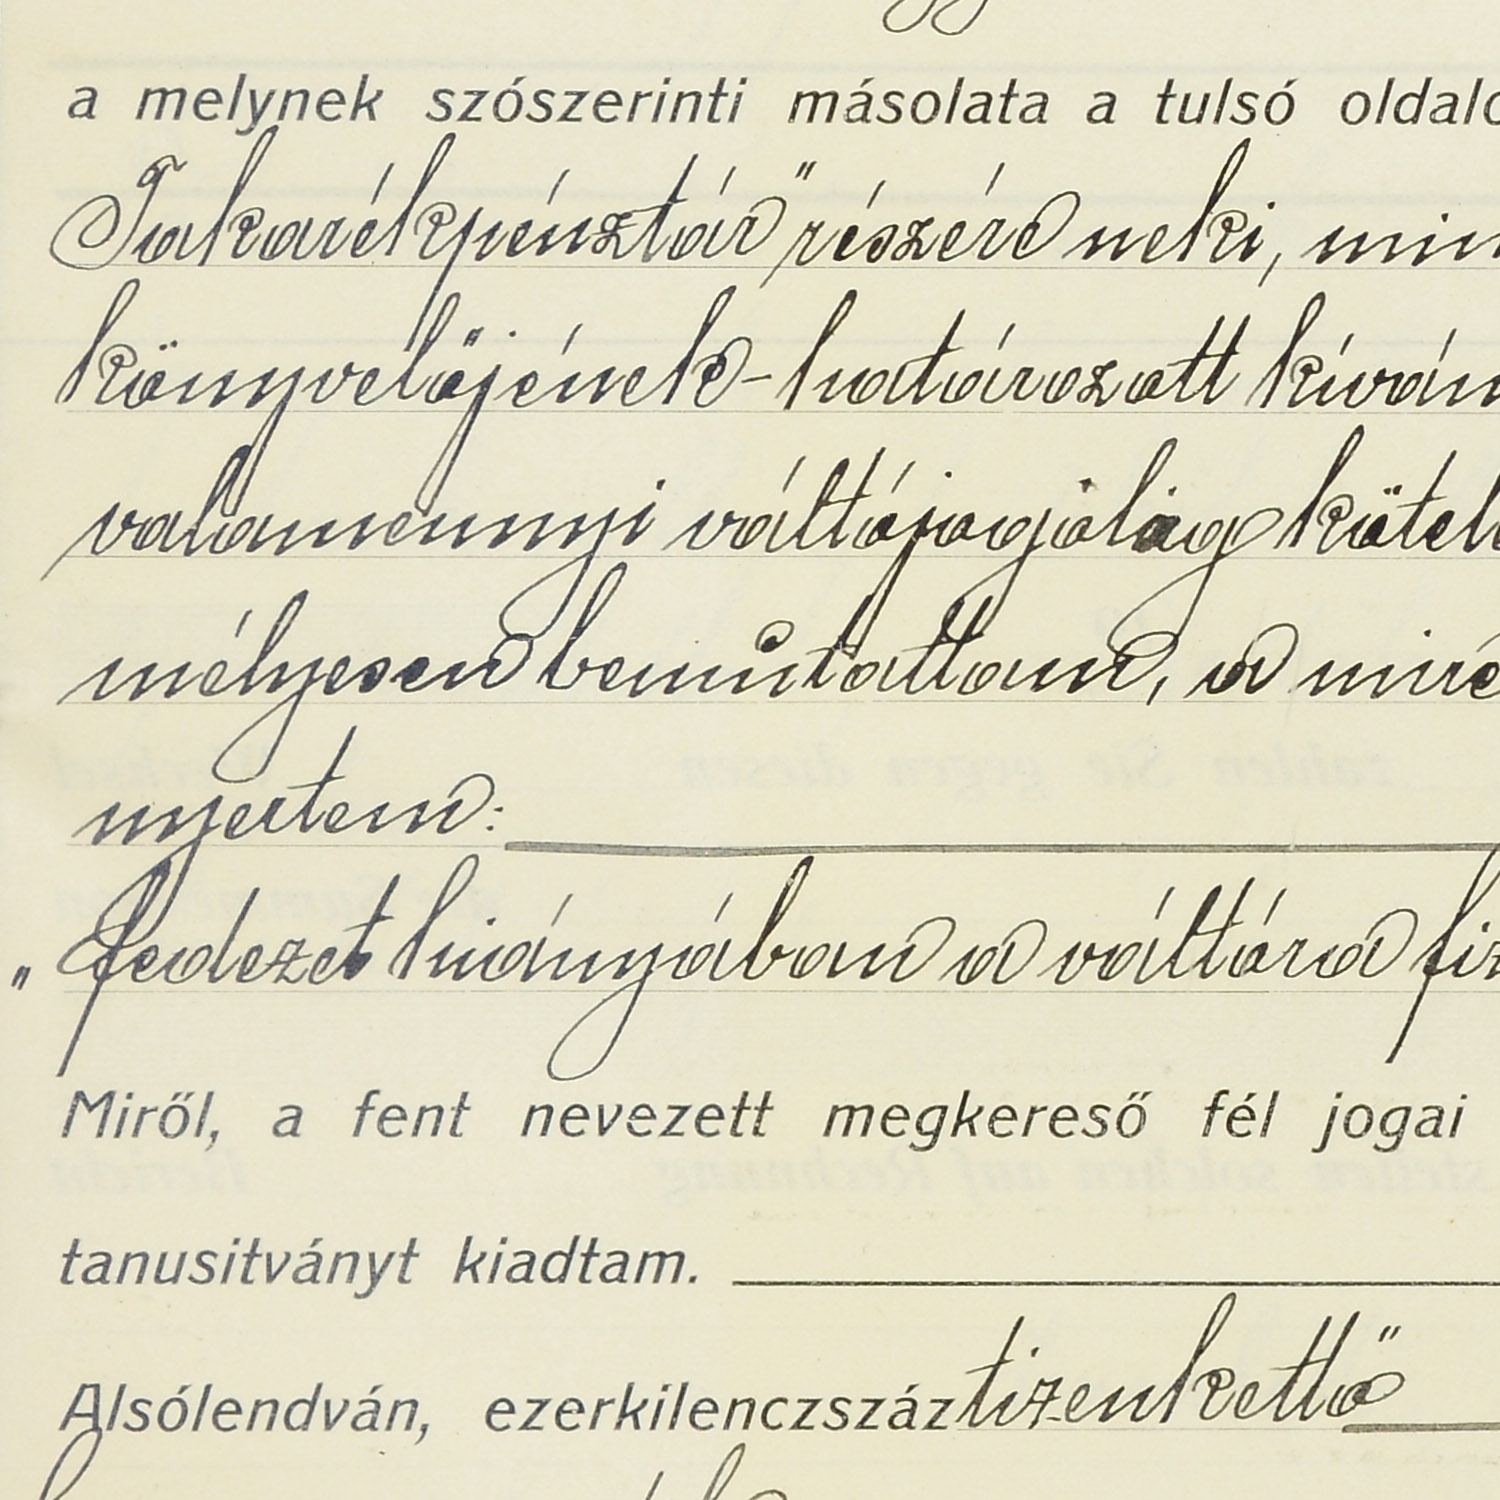 a melynek szószerinti másolata a tulsó oldal
Takarékpénztár" részére neki, min
könyvelőjének - határozott kíván
valamennyi váltójogilag kötel
mélyesen bemutattam, a mire
nyertem:
„Fedezet hiányában a váltóra fiz
Miről, a fent nevezett megkereső fél jogai
tanusitványt kiadtam.
Alsólendván, ezerkilenczszáztizenkettő